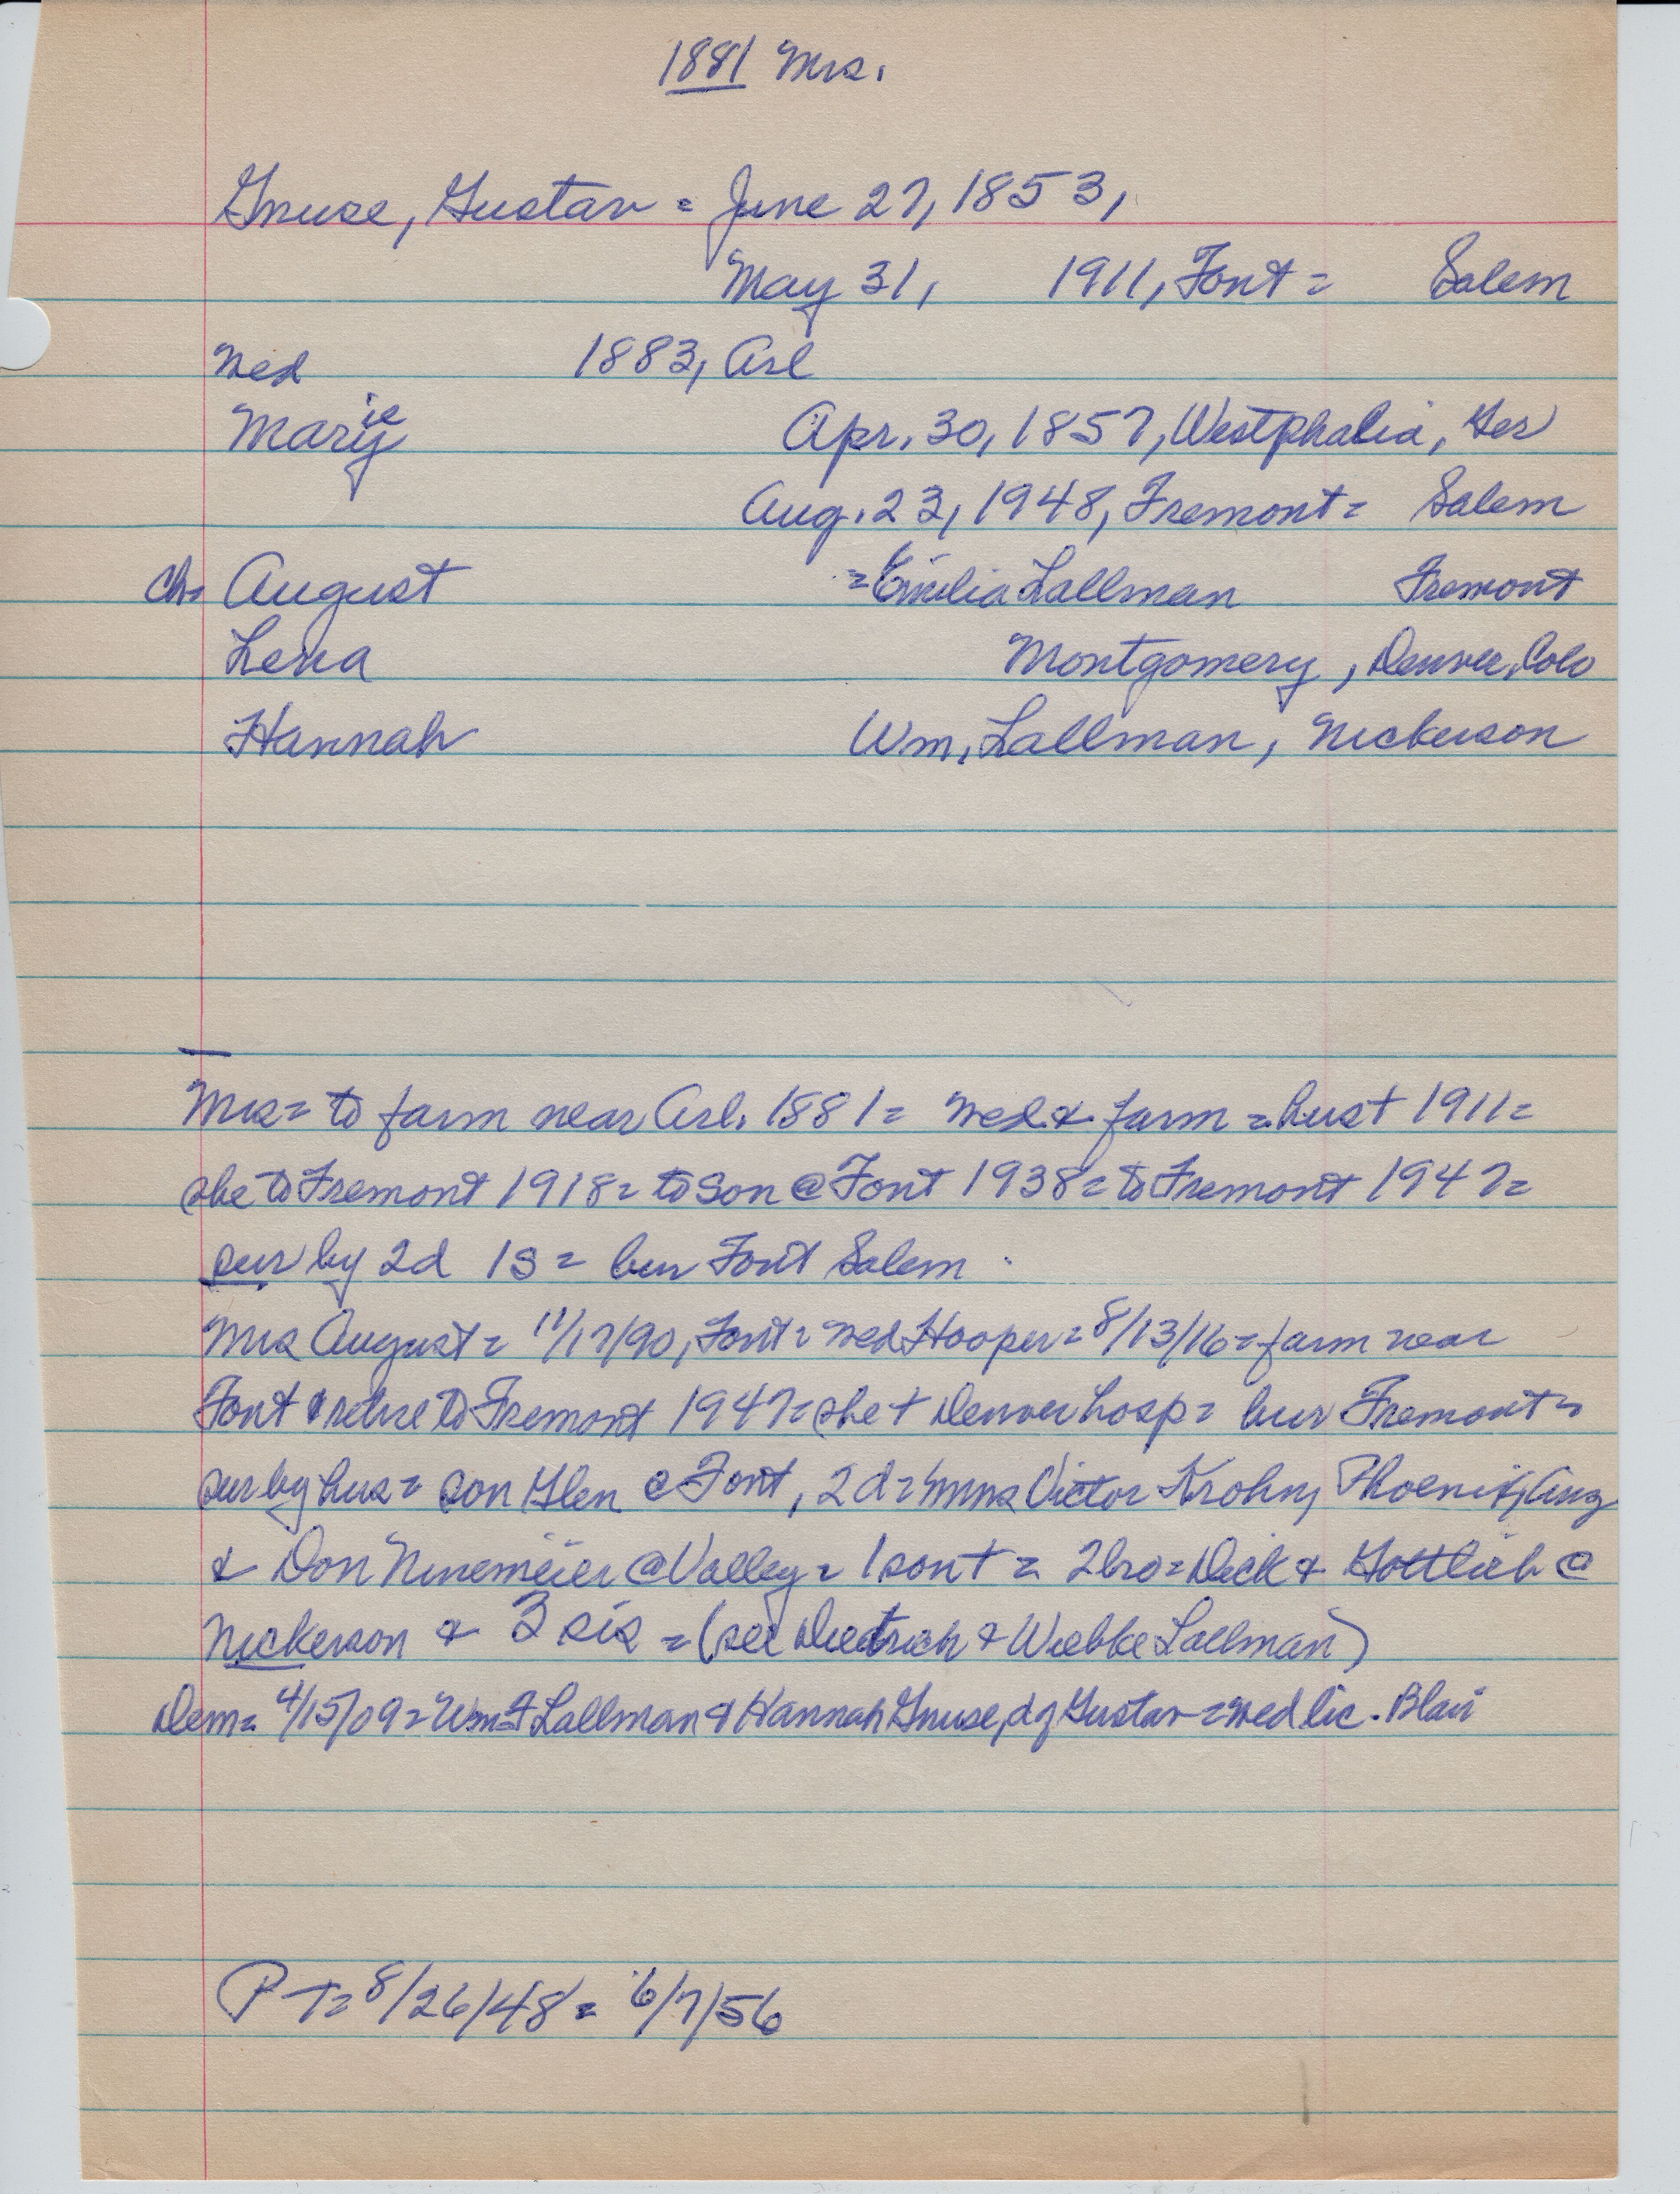 1881 Mrs.
Gnuse, Gustav = June 27, 1853,
May 31, 1911, Font = Salem
Wed 1883, Arl
Mary ie Apr. 30, 1857, Westphalia, Ger
Aug. 23, 1948, Fremont = Salem
Ch= August = Emilia Lallman Fremont
Lena Montgomery, Denver, Colo
Hannah Wm. Lallman, Nickerson
Mrs = to farm near Arl. 1881 = wed & farm = hus t 1911 =
she to Fremont 1918 = to son @ Font 1938 = to Fremont 1947 =
sur by 2d 1s = bur Font Salem
Mrs August = 11/17/90, Font = wed Hooper = 8/13/16 = farm near
Font & retire to Fremont 1947 = she t Denver hosp = bur Fremont =
sur by hus = son Glen @ Font, 2d = Mmes Victor Krohn, Phoenix, Ariz
& Don Ninemeier @ Valley = 1 son t = 2 bro = Dick & Gottlieb @
Nickerson & 3 sis = (see Diedrich & Wiebke Lallman)
Dem = 4/15/09 = Wm F Lallman & Hannah Gnuse, d of Gustav = wed lic. Blair
P T = 8/26/48 = 6/7/56